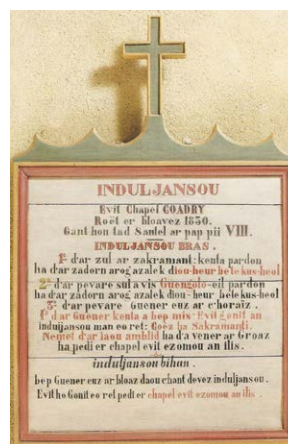 INDULJANSOU
Evit Chapel COADRY
Roët er bloavez 1830.
Gant hon tad Santel ar pap pii VIII.
INDULJANSOU BRAS.
1° d'ar zul ar zakramant: kenta pardon
ha d'ar zadorn arog azalek diou-heur betekus-heol
2° d'ar pevare sul a vis Guengolo-eil pardon
ha d'ar zadorn arog azalek diou-heur betekus-heol
3° d'ar pevare Guener euz ar c'horaiz.
d'ar Guener kenta a bep mis-Evit gonit an
induljansou man eo ret: Goëz ha Sakramanti.
Nemet d'ar iaou amblid ha d'a vener ar Groaz
ha pedi er chapel evit ezomou an ilis.
induljansou bihan.
bep Guener euz ar bloaz daou c'hant devez induljansou.
Evit ho Gonit eo ret pedi er chapel evit ezomou an ilis.